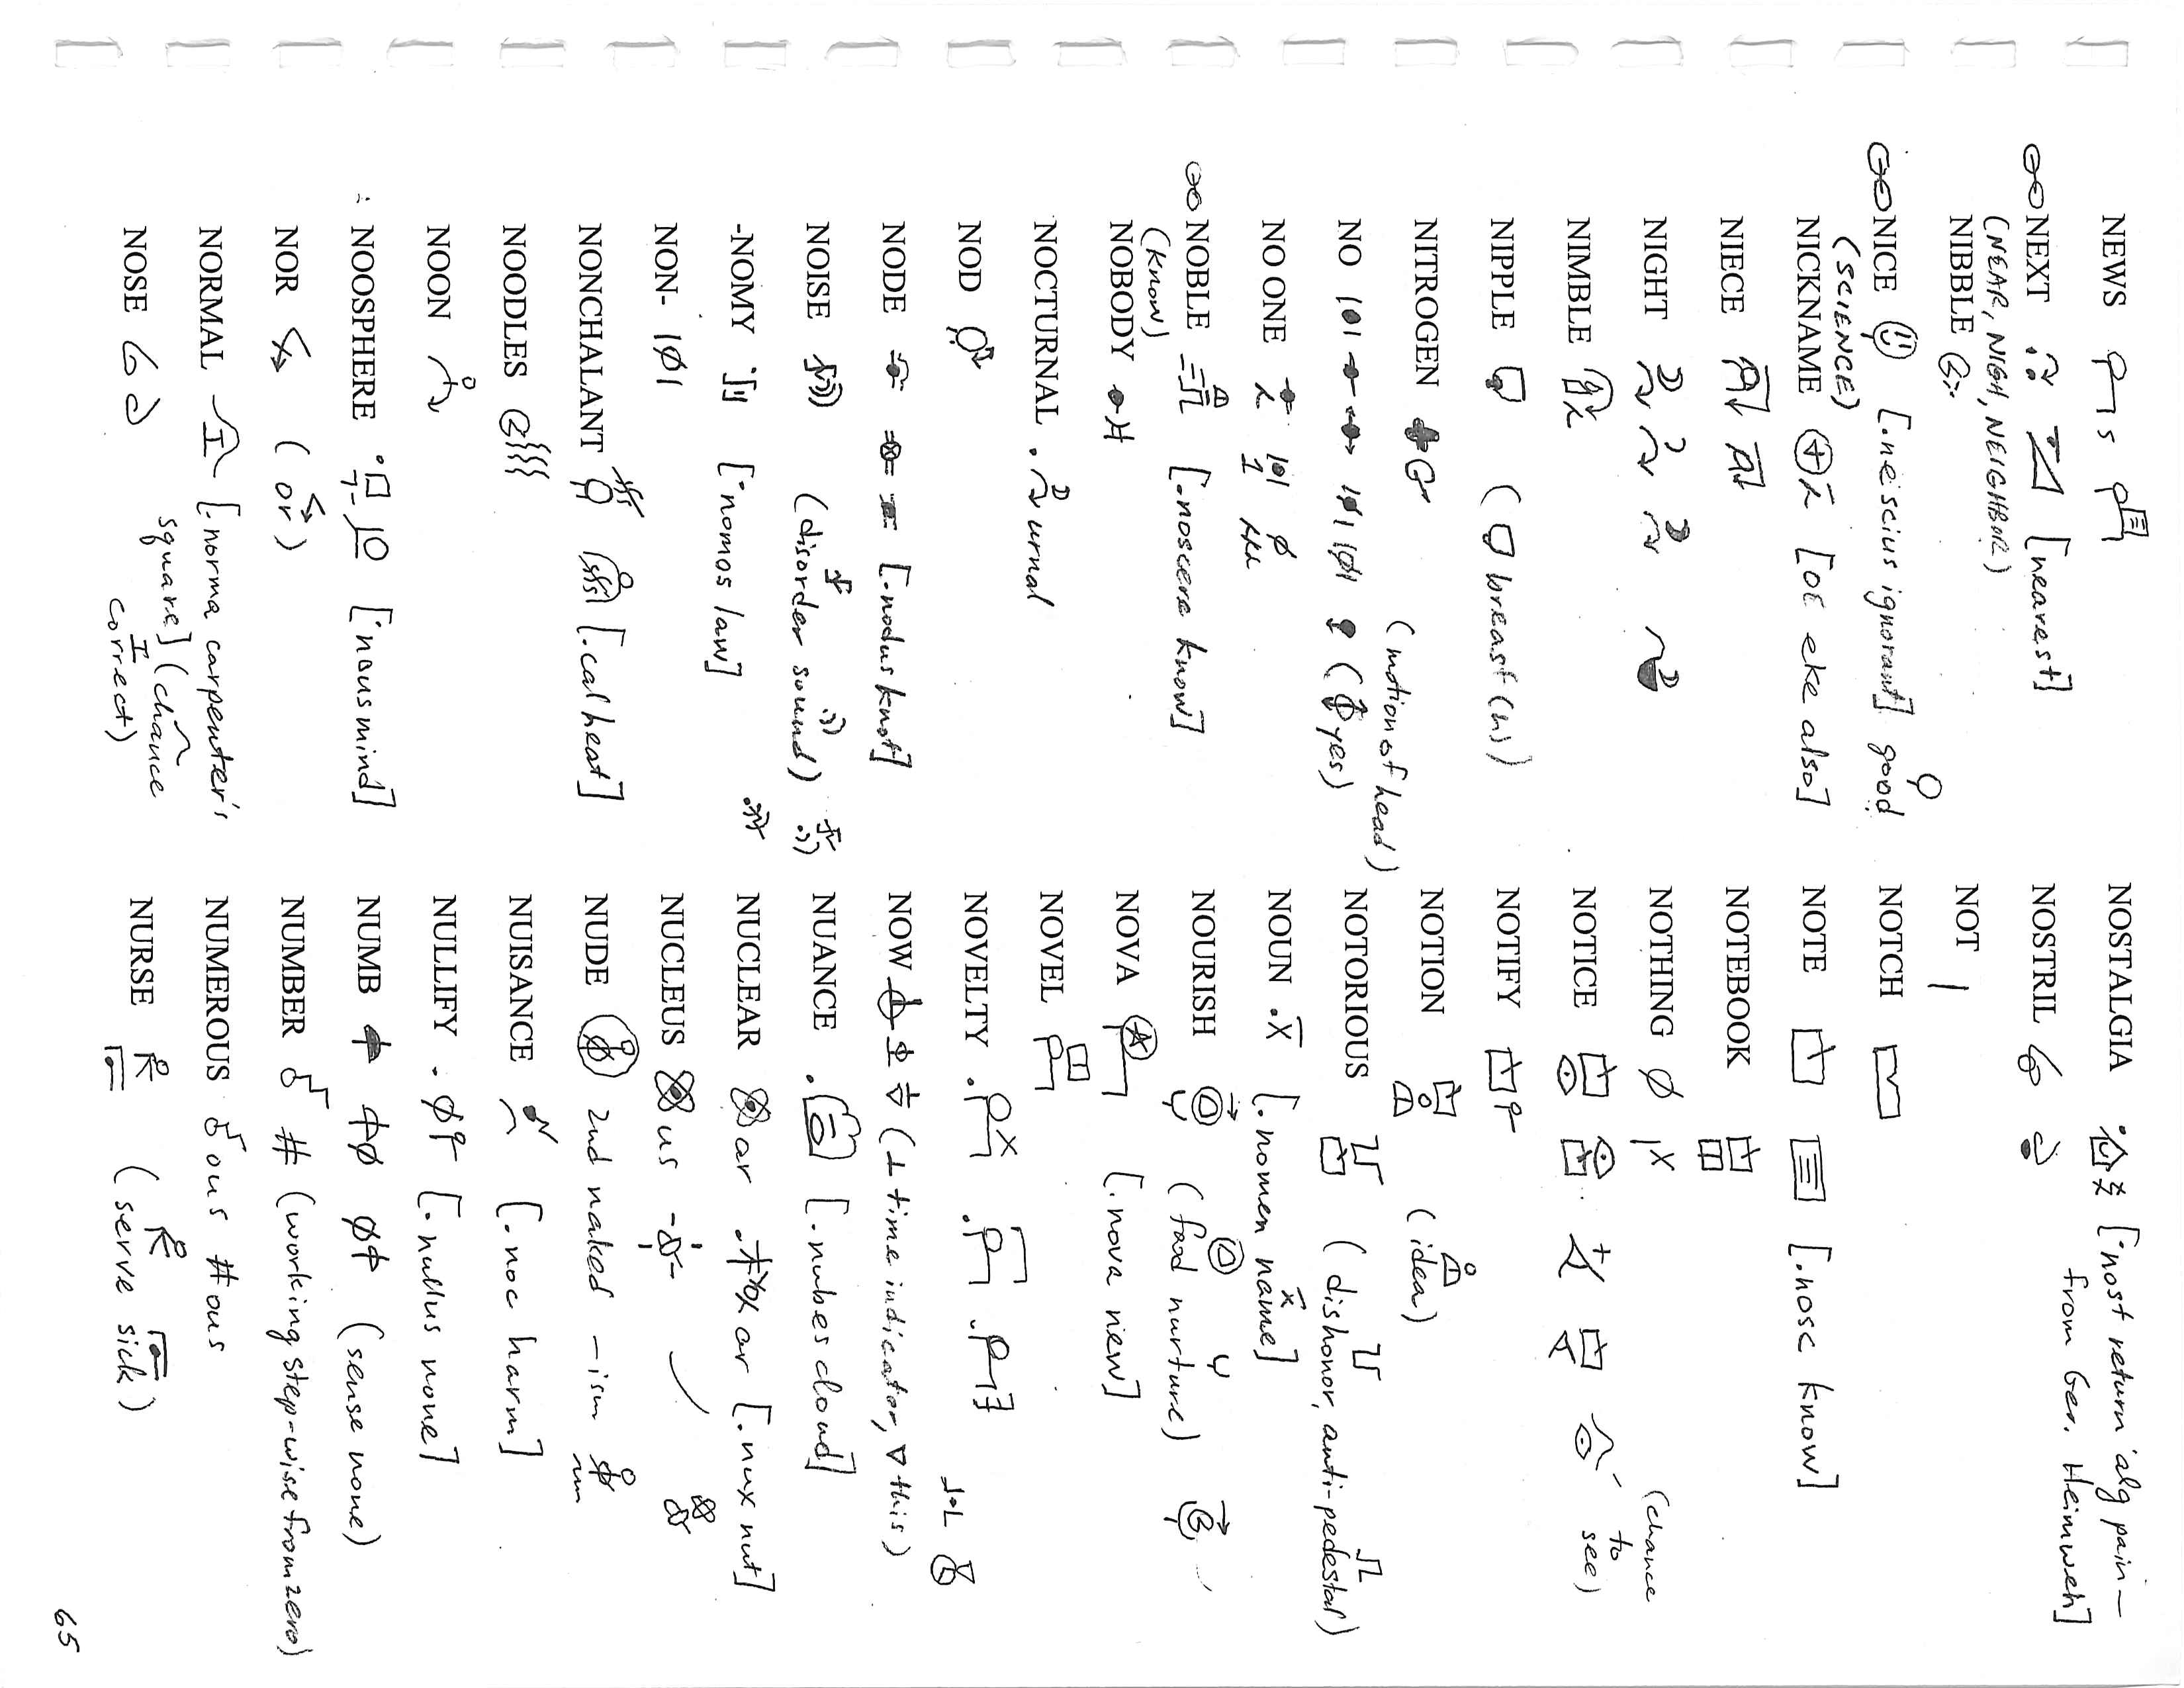 NEWS
NEXT [nearest]
(NEAR, NIGH, NEIGHBOR)
NIBBLE
NICE [.nescius ignorant] good
(SCIENCE)
NICKNAME [OE eke also]
NIECE
NIGHT
NIMBLE
NIPPLE ( breast (n))
NITROGEN
(motion of head)
NO ( yes)
NO ONE
NOBLE [.noscere know]
(know)
NOBODY
NOCTURNAL . urnal
NOD
NODE [.nodus knot]
NOISE (disorder sound)
-NOMY [˙nomos law]
NON-
NONCHALANT [.cal heat]
NOODLES
NOON
NOOSPHERE [˙nous mind]
NOR (or)
NORMAL [.norma carpenter's
square] (chance
correct)
NOSE
NOSTALGIA [˙nost return ˙alg pain —
from Ger. Heimweh]
NOSTRIL
NOT
NOTCH
NOTE [.nosc know]
NOTEBOOK
NOTHING
NOTICE (chance
to
see)
NOTIFY
NOTION (idea)
NOTORIOUS (dishonor, anti-pedestal)
NOUN [.nomen name]
NOURISH (food nurture)
NOVA [.nova new]
NOVEL
NOVELTY
NOW (⊥ time indicator, ▽ this)
NUANCE [.nubes cloud]
NUCLEAR ar ar [.nux nut]
NUCLEUS us
NUDE 2nd naked -ism
NUISANCE [.noc harm]
NULLIFY [.nullus none]
NUMB (sense none)
NUMBER # (working step-wise from zero)
NUMEROUS ous # ous
NURSE (serve sick)
65